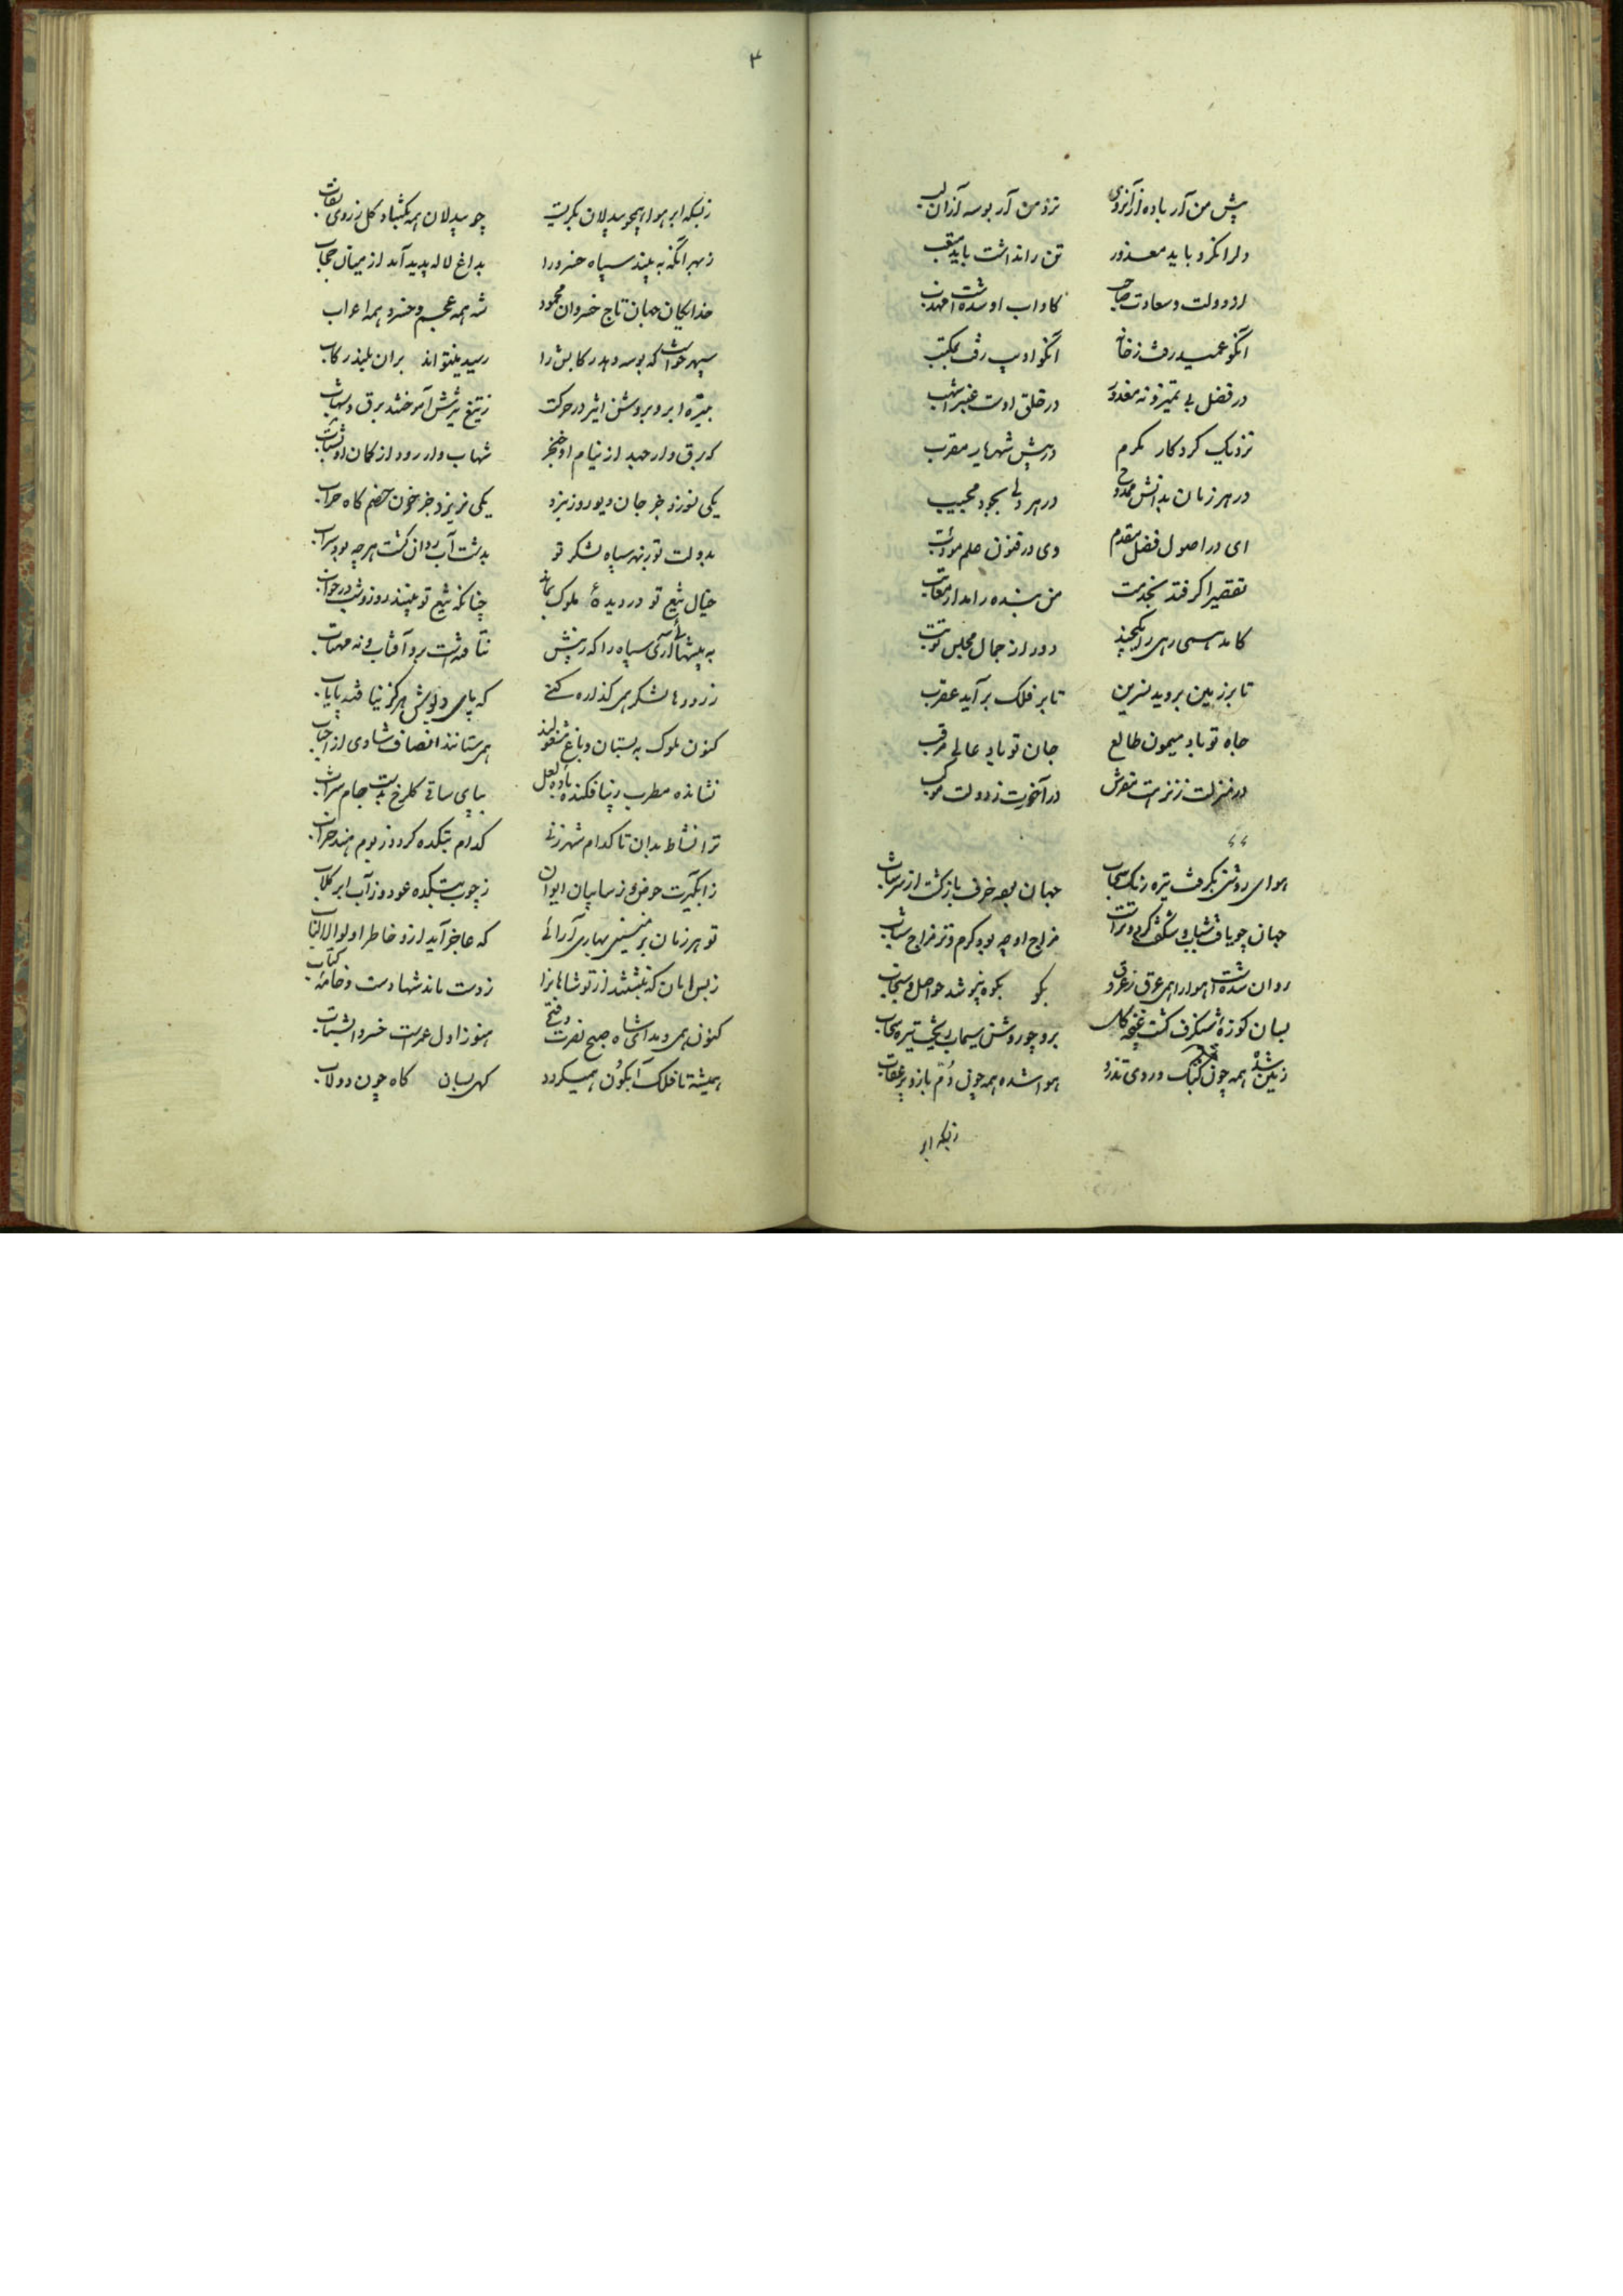 پیش من آر باده ازآنروی نزد من آر بوسه ازآن لب
دلرا نکرد باید معذور تن را نداشت باید متعب
از دولت و سعادت صاحب کاداب ازو شدست مهذب
آنگو عمید رفت ز خانه آنگو ادیب رفت بمکتب
در فضل بی تمیز و نه مغدور در خلق اوست عنبر اشهب
نزدیک کردکار مکرم در پیش شهریار مقرب
در هر زمان بدانش ممدوح در هر دلی بجود محبب
ای در اصول فضل مقدم وی در فنون علم مودب
تقصیر اکر فتد بخدمت من بنده را مدار معاتب
کامد همی رهی را یکچند دور از جمال مجلس تو تب
تا بر زمین بروید نسرین تا بر فلک برآید عقرب
جاه تو باد میمون طالع جان تو باد عالی مرقب
در منزلت ز نزهت مفرش در آخرت ز دولت مرکب
هوای روشن بکرفت تیره رنک سحاب جهان خرف بازکشت از سر شاب
جهان چو یافت شباب شکفت مزاج او چه بود کرم و تر مزاج شباب
روان شدست هوا را همی عرق ز عروق بکو بکوه پوشد حواصل و سنجاب
بسان کوزهٔ شنکرف کشت غنچه کل برو چو روشن سیماب ریخت تیره سحاب
زمین شده همه چون کبک و روی تذرو هوا شده همه چون دم باز و پر عقاب
زبسکه ابر
۳
زبسکه ابر هوا همچو بیدلان بکریست چو بیدلان همه بکشاد کل ز روی نقاب
ز بهر آنکه به بیند سپاه خسرو را بداغ لاله پدید آمد از میان حجاب
خدایکان جهان تاج خسروان محمود شه همه عجم و خسرو همه اعراب
سپهر خواست که بوسه دهد رکابش را رسید بنتواند بران بلند رکاب
اثیر در حرکت ز تیغ تیزش آموختند برق و شهاب
که برق وار جهد از نیام او خنجر شهاب وار رود از کمان او نشاب
یکی نسوزد جز جان دیو روز نبرد یکی نریزد جز خون خصم کاه ضراب
بدولت تو ز بهر سپاه لشکر تو بدشت آب روان کشت هر چه بود سراب
خیال تیغ تو در دیدهٔ ملوک بماند چنانکه تیغ تو بینند روز و شب در خواب
به بیشها آری سپاه را که ز پیش نتافتست برو آفتاب و نه مهتاب
ز رودها لشکر همی کذاره کنی که پای دیوش هرکز نیافتند پایاب
کنون ملوک به بستان و باغ مشغولند همی ستانند انصاف شادی از احباب
نشانده مطرب زیبا فکنده بادهٔ لعل بپای ساقی کلرخ بدست جام شراب
ترا نشاط بدان تا کدام شهر زنی کدام بتکده کردد ز بوم هند خراب
ز آبکیرت حوض و ز سایبان ایوان ز چوب بتکده عود و ز آب ابر کلاب
تو هر زمان بر بهاری آرائی که عاجز آید ازو خاطر اولوالالباب
ز بس امان که نبشتند از تو شاهانرا ز دست ماند شها دست و خامهٔ کتاب
کنون همی دمد ای شاه صبح نصرت و فتح هنوز اول عمرست خسروا بشتاب
همیشه تا فلک آبکون همیکردد کهی بسان کاه چون دولاب